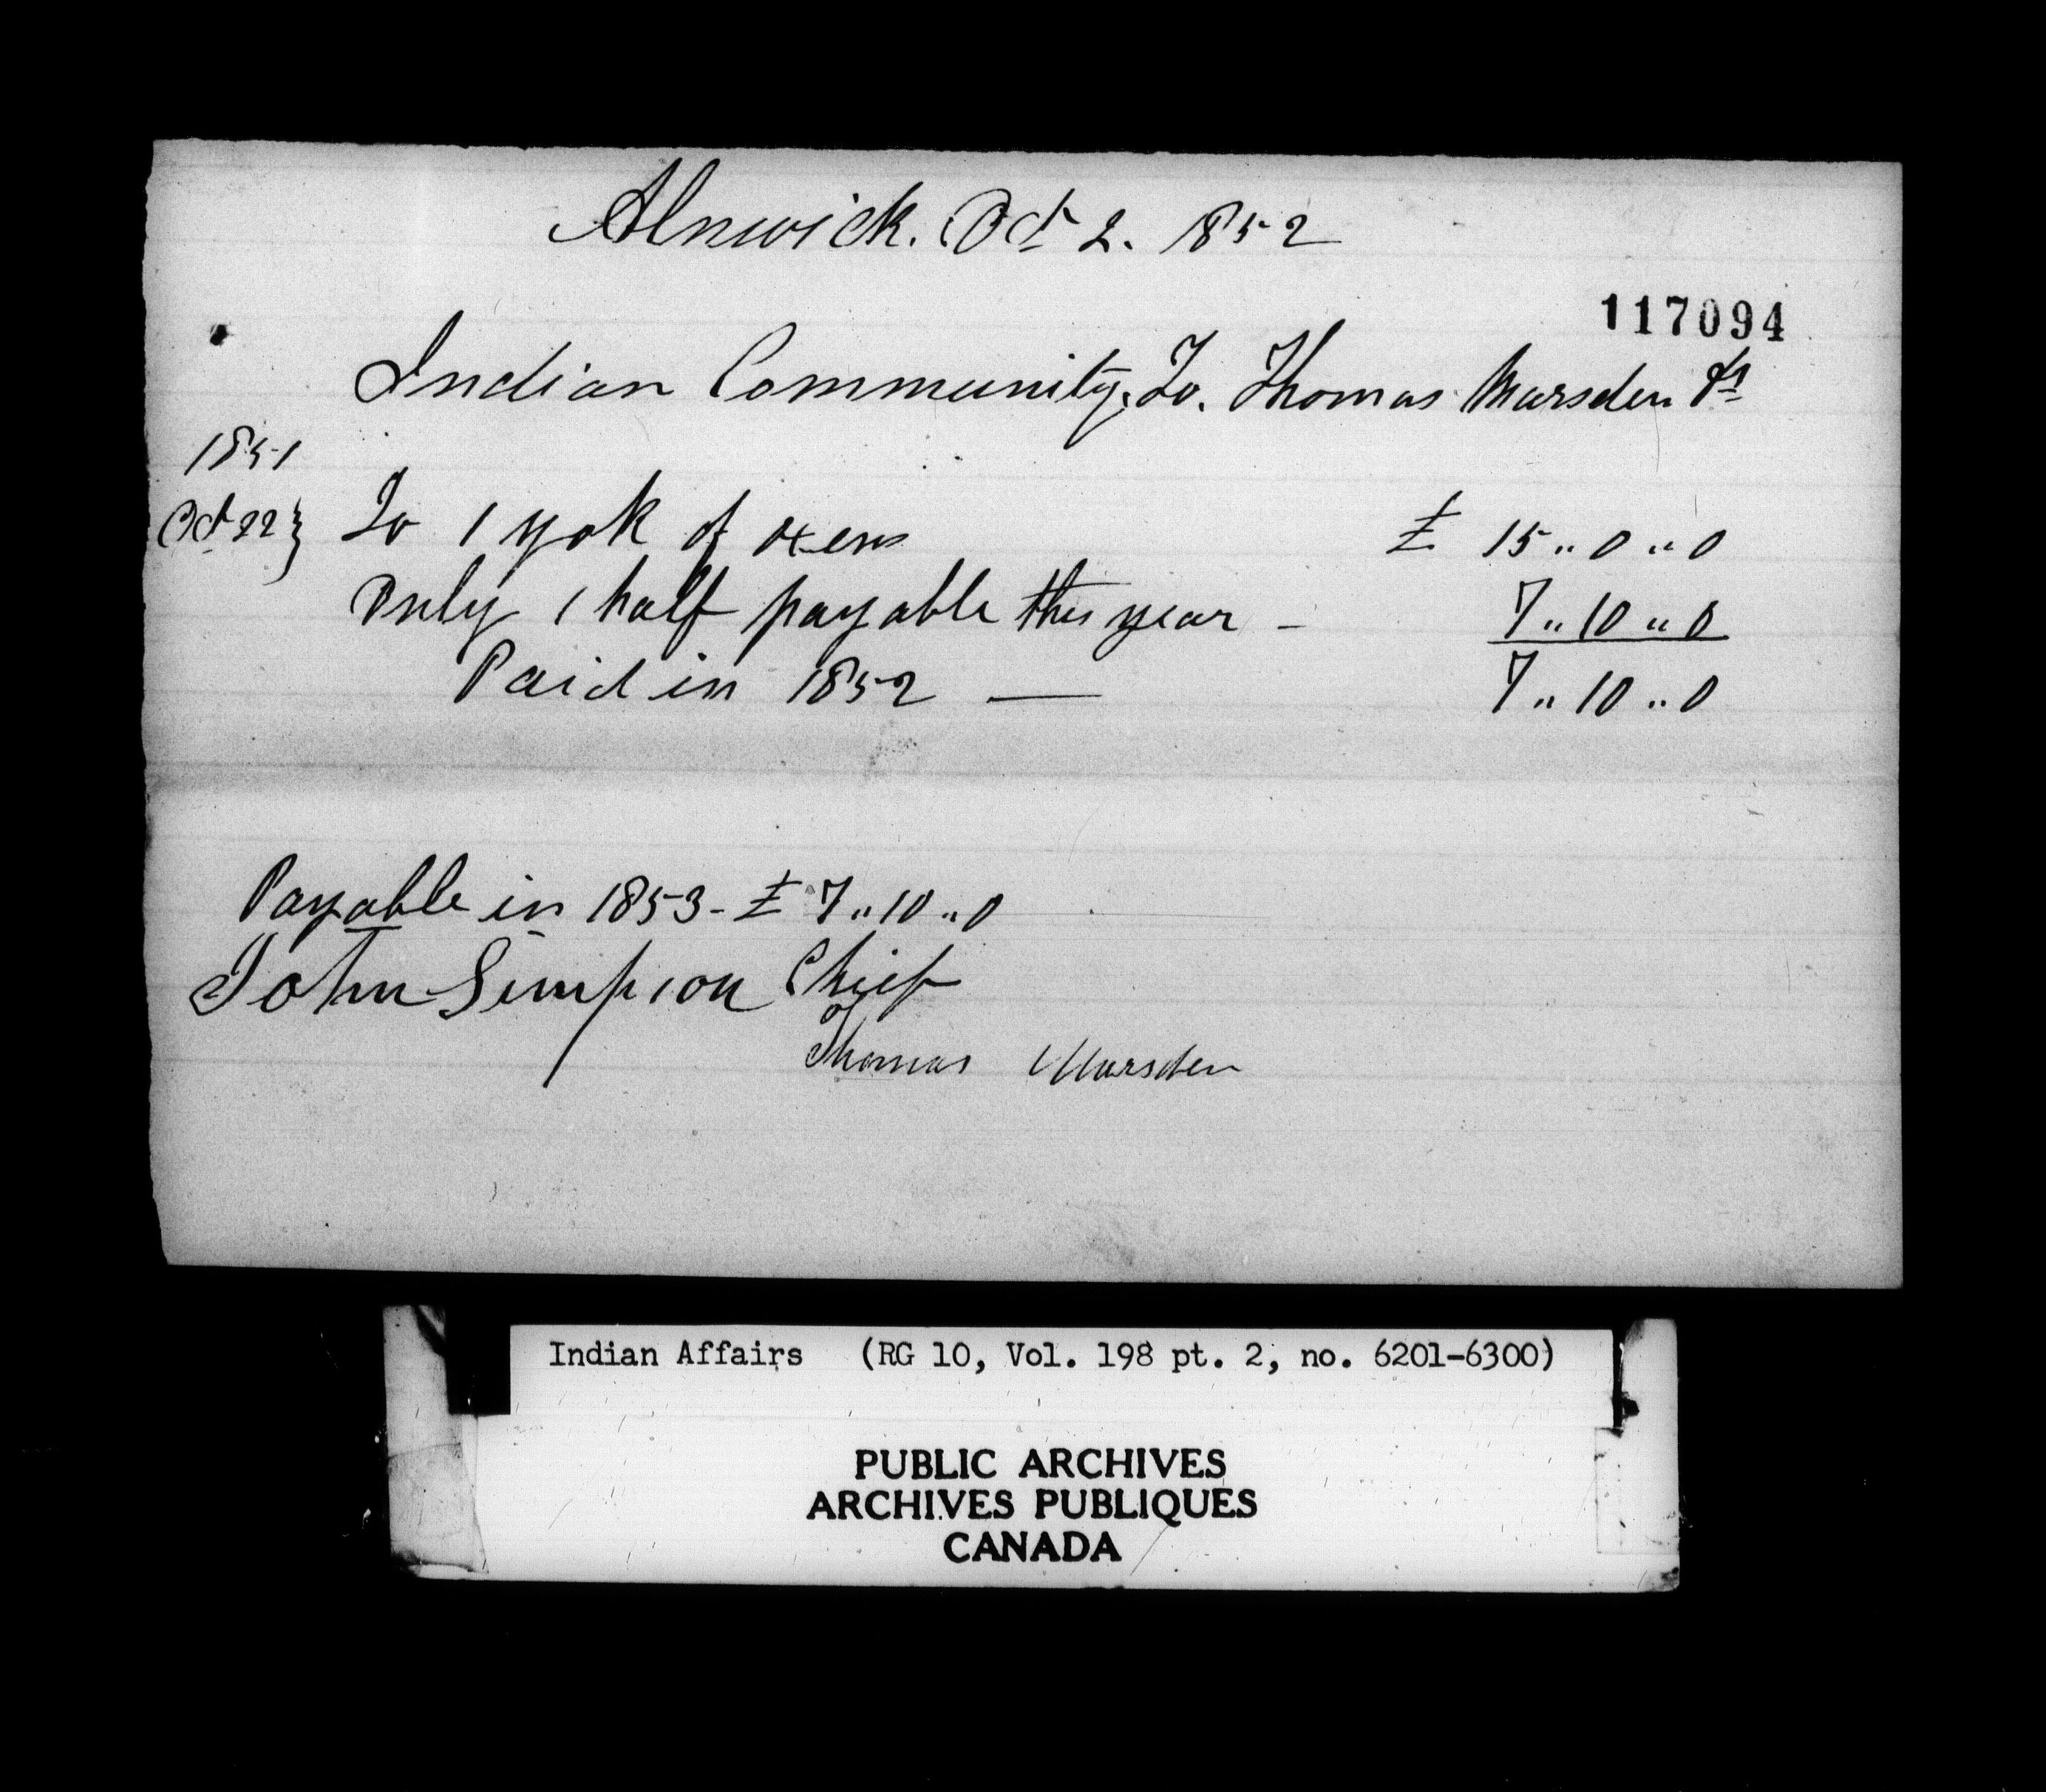 Alnwick. Oct 2. 1852
117094
Indian Community, To. Thomas Marsden Dr
1851
Oct 22 } To 1 yok of oxen £ 15 " 0 " 0
Only 1 half payable this year - 7 " 10 " 0
Paid in 1852 — 7 " 10 " 0
Payable in 1853 - £ 7 " 10 " 0
John Simpson Chief
Thomas Marsden
Indian Affairs (RG 10, Vol. 198 pt. 2, no. 6201-6300)
PUBLIC ARCHIVES
ARCHIVES PUBLIQUES
CANADA